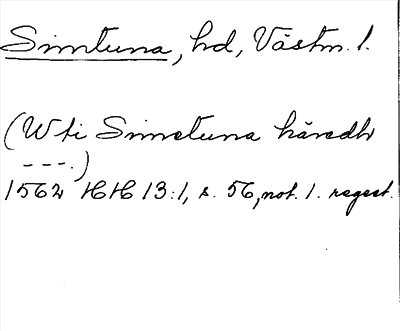 Simtuna, hd, Västm. l.
(Wti Simetuna häredh
---.)
1562 HH 13:1, s. 56, not. 1. regest.